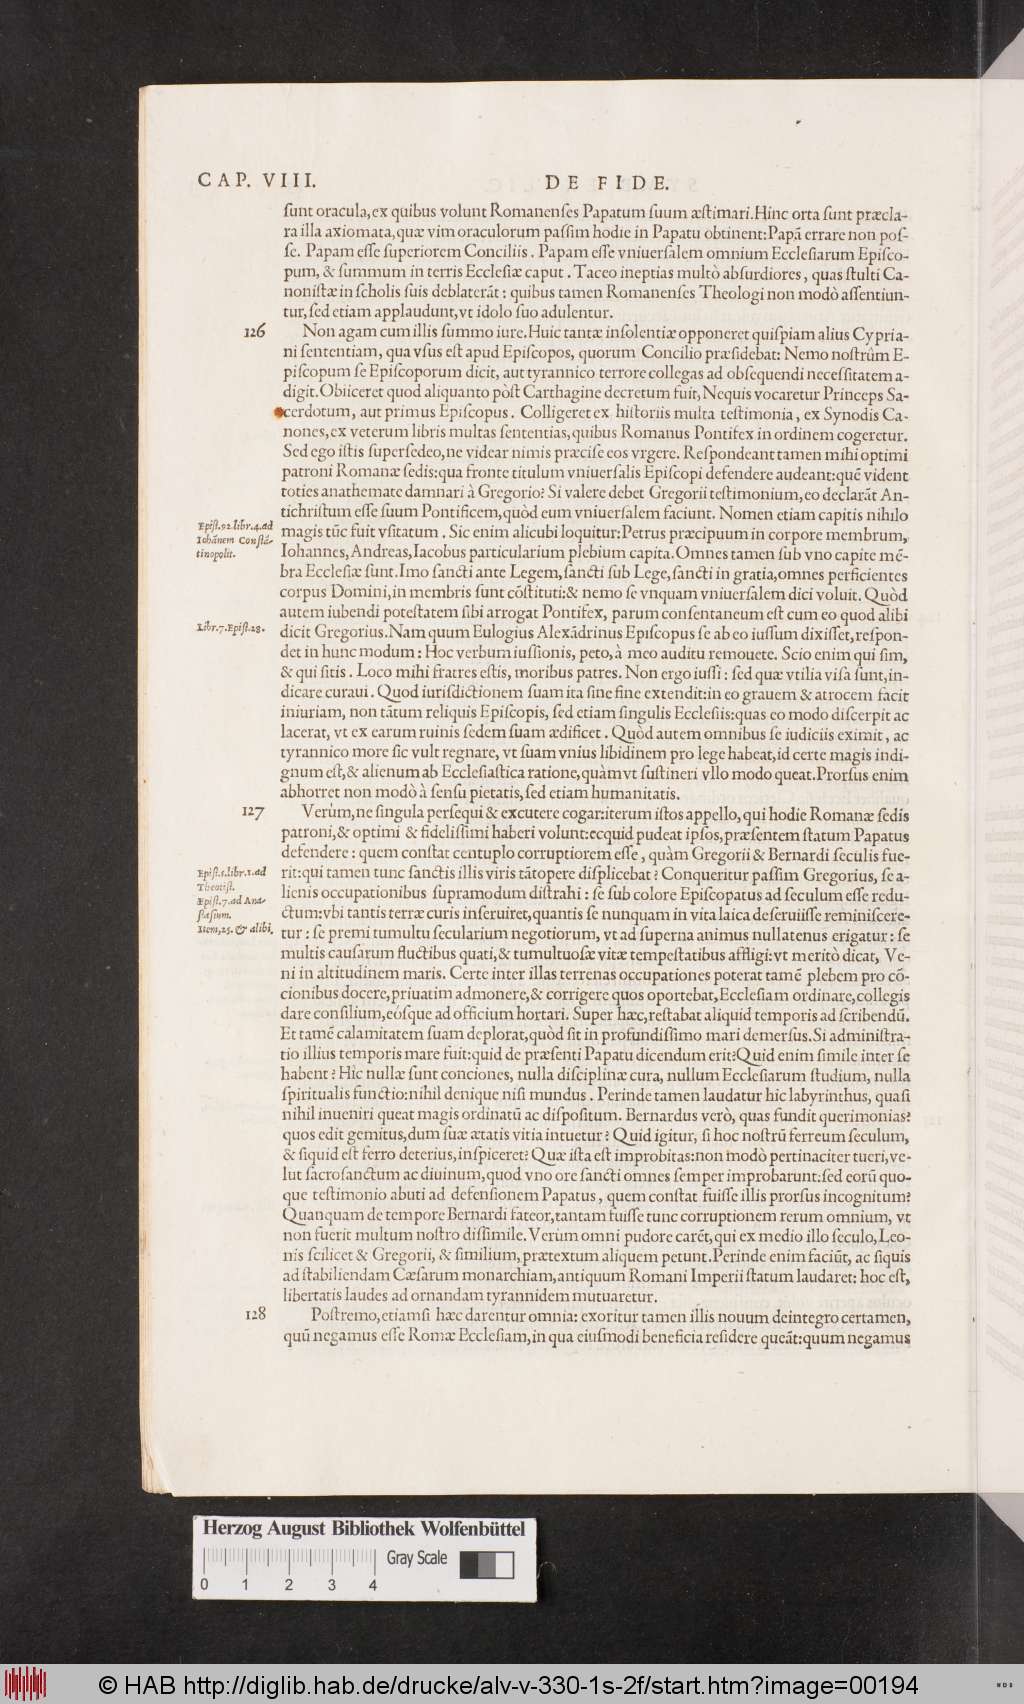 CAP. VIII. DE FIDE.
ſunt oracula,ex quibus volunt Romanenſes Papatum ſuum æſtimari.Hinc orta ſunt præcla-
ra illa axiomata,quæ vim oraculorum paſſim hodie in Papatu obtinent:Papã errare non poſ-
ſe. Papam eſſe ſuperiorem Conciliis. Papam eſſe vniuerſalem omnium Eccleſiarum Epiſco-
pum, & ſummum in terris Eccleſiæ caput. Taceo ineptias multò abſurdiores, quas ſtulti Ca-
noniſtæ in ſcholis ſuis deblaterãt: quibus tamen Romanenſes Theologi non modò aſſentiun-
tur,ſed etiam applaudunt,vt idolo ſuo adulentur.
126 Non agam cum illis ſummo iure.Huic tantæ inſolentiæ opponeret quiſpiam alius Cypria-
ni ſententiam, qua vſus eſt apud Epiſcopos, quorum Concilio præſidebat: Nemo noſtrûm E-
piſcopum ſe Epiſcoporum dicit, aut tyrannico terrore collegas ad obſequendi neceſſitatem a-
digit.Obiiceret quod aliquanto pòſt Carthagine decretum fuit,Nequis vocaretur Princeps Sa-
cerdotum, aut primus Epiſcopus. Colligeret ex hiſtoriis multa teſtimonia, ex Synodis Ca-
nones,ex veterum libris multas ſententias,quibus Romanus Pontifex in ordinem cogeretur.
Sed ego iſtis ſuperſedeo,ne videar nimis præciſe eos vrgere. Reſpondeant tamen mihi optimi
patroni Romanæ ſedis:qua fronte titulum vniuerſalis Epiſcopi defendere audeant:quẽ vident
toties anathemate damnari à Gregorio? Si valere debet Gregorii teſtimonium,eo declarãt An-
tichriſtum eſſe ſuum Pontificem,quòd eum vniuerſalem faciunt. Nomen etiam capitis nihilo
Epiſt.92.libr.4.ad
Iohãnem Conſtã-
tinopolit.
magis tũc fuit vſitatum. Sic enim alicubi loquitur:Petrus præcipuum in corpore membrum,
Iohannes,Andreas,Iacobus particularium plebium capita.Omnes tamen ſub vno capite mẽ-
bra Eccleſiæ ſunt.Imo ſancti ante Legem,ſancti ſub Lege,ſancti in gratia,omnes perficientes
corpus Domini,in membris ſunt cõſtituti:& nemo ſe vnquam vniuerſalem dici voluit. Quòd
autem iubendi poteſtatem ſibi arrogat Pontifex, parum conſentaneum eſt cum eo quod alibi
Libr.7.Epiſt.28.
dicit Gregorius.Nam quum Eulogius Alexãdrinus Epiſcopus ſe ab eo iuſſum dixiſſet,reſpon-
det in hunc modum: Hoc verbum iuſſionis, peto,à meo auditu remouete. Scio enim qui ſim,
& qui ſitis. Loco mihi fratres eſtis, moribus patres. Non ergo iuſſi: ſed quæ vtilia viſa ſunt,in-
dicare curaui. Quod iuriſdictionem ſuam ita ſine fine extendit:in eo grauem & atrocem facit
iniuriam, non tãtum reliquis Epiſcopis, ſed etiam ſingulis Eccleſiis:quas eo modo diſcerpit ac
lacerat, vt ex earum ruinis ſedem ſuam ædificet. Quòd autem omnibus ſe iudiciis eximit, ac
tyrannico more ſic vult regnare, vt ſuam vnius libidinem pro lege habeat,id certe magis indi-
gnum eſt,& alienum ab Eccleſiaſtica ratione,quàm vt ſuſtineri vllo modo queat.Prorſus enim
abhorret non modò à ſenſu pietatis,ſed etiam humanitatis.
127 Verùm,ne ſingula perſequi & excutere cogar:iterum iſtos appello,qui hodie Romanæ ſedis
patroni,& optimi & fideliſſimi haberi volunt:ecquid pudeat ipſos,præſentem ſtatum Papatus
defendere: quem conſtat centuplo corruptiorem eſſe, quàm Gregorii & Bernardi ſeculis fue-
Epiſt.5.libr.1.ad
Theotiſt.
Epiſt.7.ad Ana-
ſtaſium.
Item,25. & alibi.
rit:qui tamen tunc ſanctis illis viris tãtopere diſplicebat? Conqueritur paſſim Gregorius, ſe a-
lienis occupationibus ſupramodum diſtrahi: ſe ſub colore Epiſcopatus ad ſeculum eſſe redu-
ctum:vbi tantis terræ curis inſeruiret,quantis ſe nunquam in vita laica deſeruiiſſe reminiſcere-
tur: ſe premi tumultu ſecularium negotiorum, vt ad ſuperna animus nullatenus erigatur: ſe
multis cauſarum fluctibus quati,& tumultuoſæ vitæ tempeſtatibus affligi:vt meritò dicat, Ve-
ni in altitudinem maris. Certe inter illas terrenas occupationes poterat tamẽ plebem pro cõ-
cionibus docere,priuatim admonere,& corrigere quos oportebat,Eccleſiam ordinare,collegis
dare conſilium,eóſque ad officium hortari. Super hæc,reſtabat aliquid temporis ad ſcribendũ.
Et tamẽ calamitatem ſuam deplorat,quòd ſit in profundiſſimo mari demerſus.Si adminiſtra-
tio illius temporis mare fuit:quid de præſenti Papatu dicendum erit?Quid enim ſimile inter ſe
habent? Hîc nullæ ſunt conciones, nulla diſciplinæ cura, nullum Eccleſiarum ſtudium, nulla
ſpiritualis functio:nihil denique niſi mundus. Perinde tamen laudatur hic labyrinthus, quaſi
nihil inueniri queat magis ordinatũ ac diſpoſitum. Bernardus verò, quas fundit querimonias?
quos edit gemitus,dum ſuæ ætatis vitia intuetur? Quid igitur, ſi hoc noſtrũ ferreum ſeculum,
& ſiquid eſt ferro deterius,inſpiceret? Quæ iſta eſt improbitas:non modò pertinaciter tueri,ve-
lut ſacroſanctum ac diuinum,quod vno ore ſancti omnes ſemper improbarunt:ſed eorũ quo-
que teſtimonio abuti ad defenſionem Papatus, quem conſtat fuiſſe illis prorſus incognitum?
Quanquam de tempore Bernardi fateor,tantam fuiſſe tunc corruptionem rerum omnium, vt
non fuerit multum noſtro diſſimile.Verùm omni pudore carẽt,qui ex medio illo ſeculo,Leo-
nis ſcilicet & Gregorii, & ſimilium,prætextum aliquem petunt.Perinde enim faciũt, ac ſiquis
ad ſtabiliendam Cæſarum monarchiam,antiquum Romani Imperii ſtatum laudaret: hoc eſt,
libertatis laudes ad ornandam tyrannidem mutuaretur.
128 Poſtremo,etiamſi hæc darentur omnia: exoritur tamen illis nouum deintegro certamen,
quũ negamus eſſe Romæ Eccleſiam,in qua eiuſmodi beneficia reſidere queãt:quum negamus
Herzog August Bibliothek Wolfenbüttel
Gray Scale
0 1 2 3 4
© HAB http://diglib.hab.de/drucke/alv-v-330-1s-2f/start.htm?image=00194